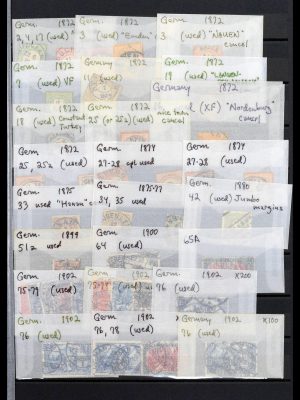 Germ. 1872
2, 4, 17 (used)
Germ. 1872
3 (used) "Emden"
cancel
Germ. 1872
3 (used) "NAUEN"
cancel
Germ. 1872
9 (used) VF
Germany 1872
(used)
Germ. 1872
19 (used)
cancel
Germ. 1872
18 (used) Constant
Turkey
Germ. 1872
25 (or 25a) (used)
Germany 1872
(used) (XF) "Nordenburg"
nice town
cancel
Germ. 1872
25, 25a (used)
Germ. 1874
27-28 cpl used
Germ. 1874
27-28 (used)
Germ 1875
33 used
cancel
Germ. 1875-77
34, 35 used
Germ. 1880
42 (used) Jumbo
margins
Germ. 1899
51a used
Germ. 1900
64 (used)
65A
Germ. 1902
75-79 (used)
Germ. 1902
75-79 (used)
Germany. 1902 X200
76 (used)
Germ. 1902
76 (used)
Germ. 1902
76, 78 (used)
Germany 1902 X100
76 (used)